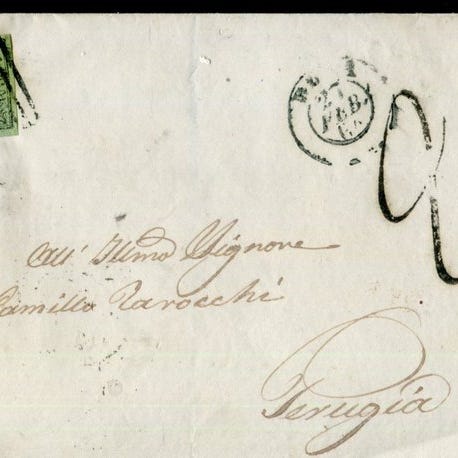 21
FEB.
All' Illmo Signore
Camillo Tarocchi
Perugia